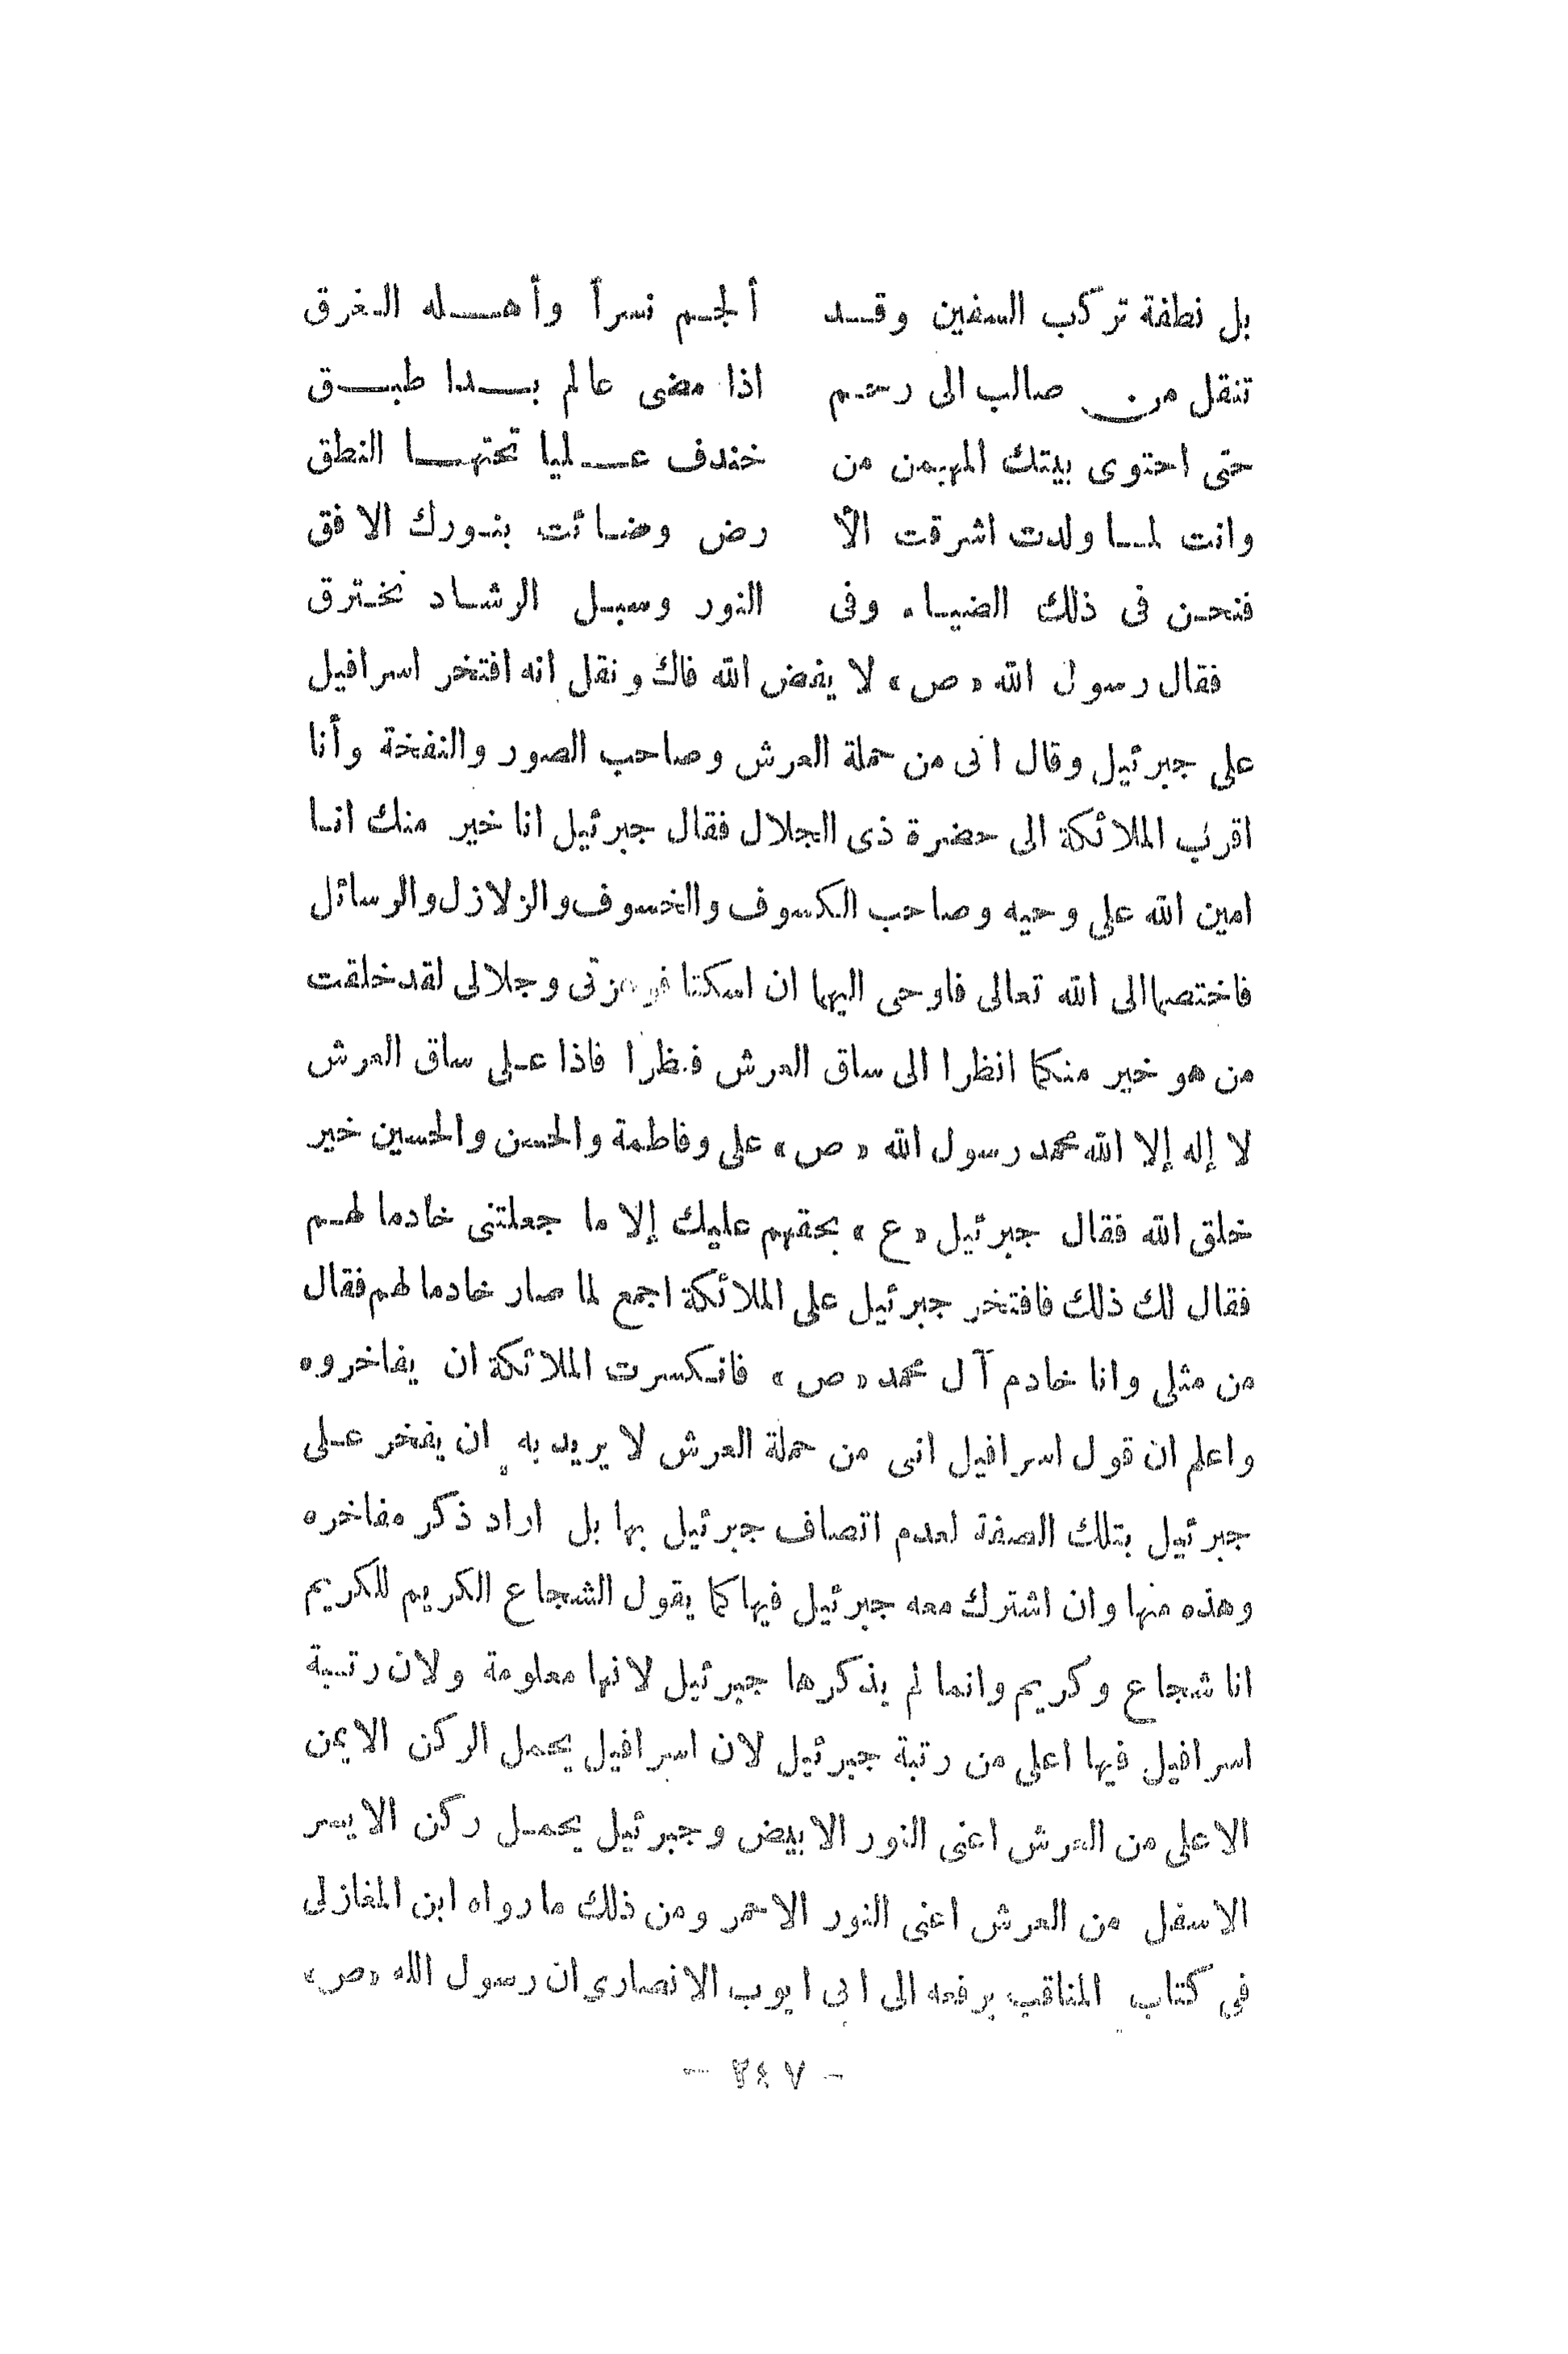 بل نطفة تركب السفين وقد ألجم نسرأ وأهله الغرق
تنقل من صالب الى رحم اذا مضى عالم بدا طبق
حتى احتوى بيتك المهيمن من خندف عليا تحتها النطق
وانت لما ولدت اشرقت الأ رض وضائت بنورك الافق
فنحن فى ذلك الضياء وفى النور وسبل الرشاد نخترق
فقال رسول الله «ص» لا يفضض الله فاك ونقل انه افتخر اسرافيل
على جبرئيل وقال انى من حملة العرش وصاحب الصور والنفخة وأنا
اقرب الملائكة الى حضرة ذى الجلال فقال جبرئيل انا خير منك انا
امين الله على وحيه وصاحب الكسوف والخسوف والزلازل والرسائل
فاختصما الى الله تعالى فاوحى اليهما ان اسكتا فوعزتى وجلالى لقد خلقت
من هو خير منكما انظرا الى ساق العرش فنظرا فاذا على ساق العرش
لا إله إلا الله محمد رسول الله «ص» على وفاطمة والحسن والحسين خير
خلق الله فقال جبرئيل «ع» بحقهم عليك إلا ما جعلتنى خادما لهم
فقال لك ذلك فافتخر جبرئيل على الملائكة اجمع لما صار خادما لهم فقال
من مثلى وانا خادم آل محمد «ص» فانكسرت الملائكة ان يفاخروه
واعلم ان قول اسرافيل انى من حملة العرش لا يريد به ان يفخر على
جبرئيل بتلك الصفة لعدم اتصاف جبرئيل بها بل اراد ذكر مفاخره
وهذه منها وان اشترك معه جبرئيل فيها كما يقول الشجاع الكريم للكريم
انا شجاع وكريم وانما لم يذكرها جبرئيل لانها معلومة ولان رتبة
اسرافيل فيها اعلى من رتبة جبرئيل لان اسرافيل يحمل الركن الايمن
الاعلى من العرش اعنى النور الابيض وجبرئيل يحمل ركن الايسر
الاسفل من العرش اعنى النور الاحمر ومن ذلك ما رواه ابن المغازلى
في كتاب المناقب يرفعه الى ابى ايوب الانصاري ان رسول الله «ص»
- ٢٤٧ -